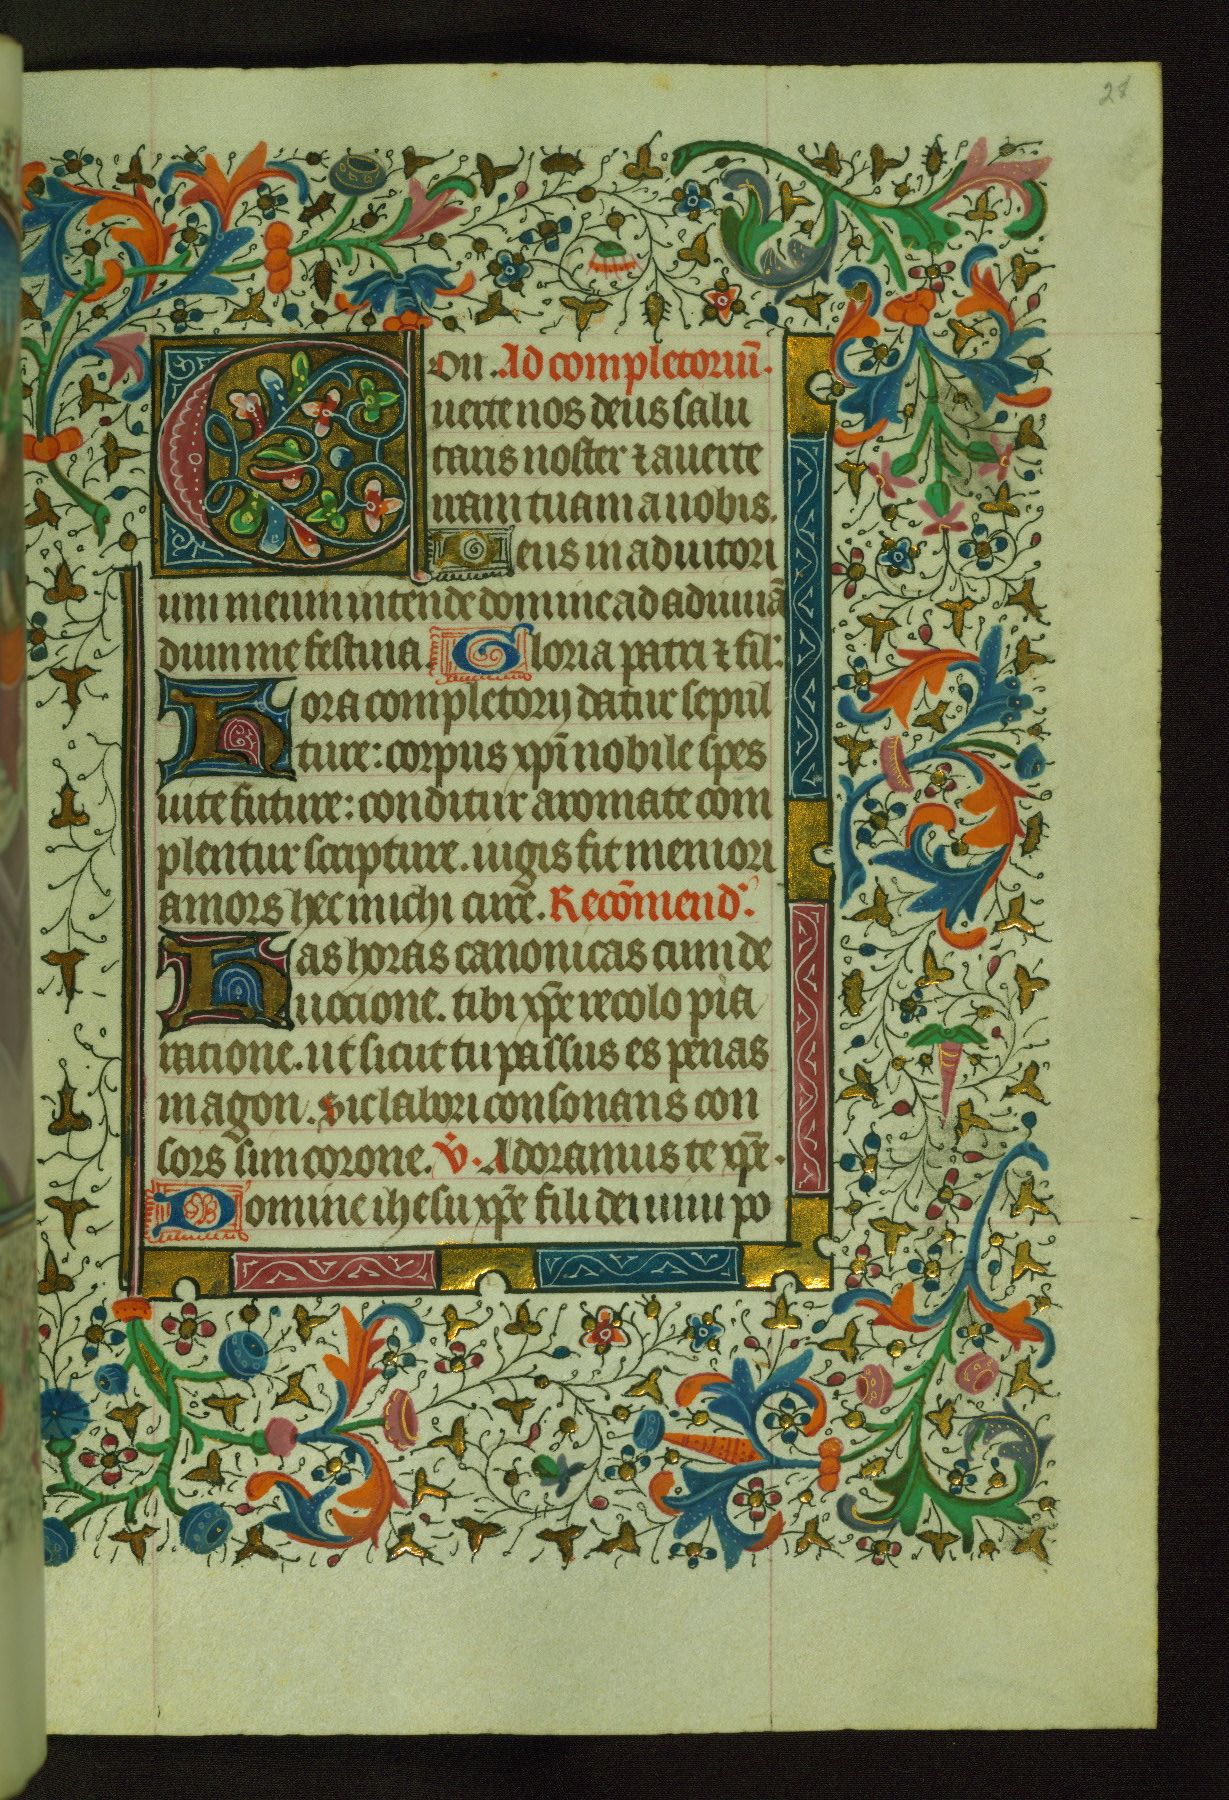 28
Con. Ad completoriū.
uerte nos deus salu
taris noster ⁊ auerte
iram tuam a nobis.
Deus in adiutori
um meum intende domine ad adiuuā
dum me festina. Gloria patri ⁊ fil:
Hora completorij datur sepul
ture: corpus xp̄i nobile spes
uite future: conditur aromate com
plentur scripture. iugis sit memori
amors hec michi cure. Recōmend.
Has horas canonicas cum de
uocione. tibi xp̄e recolo pia
ratione. ut sicut tu passus es penas
in agon. sic labori consonans con
sors sim corone. v̄. Adoramus te xp̄e.
Domine ihesu xp̄e fili dei uiui po